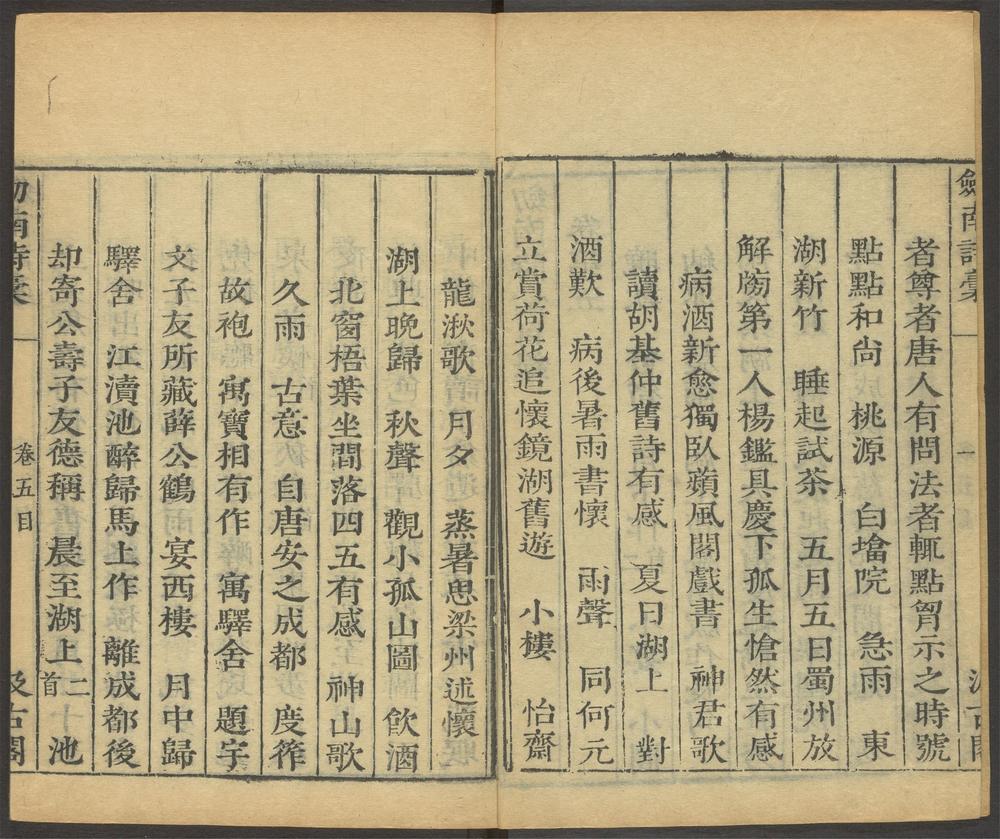 劒南詩稾
者尊者唐人有問法者輒點胷示之時號
點點和尙 桃源 白塔院 急雨 東
湖新竹 睡起試茶 五月五日蜀州放
解牓第一人楊鑑具慶下孤生愴然有感
病酒新愈獨臥蘋風閣戲書 神君歌
讀胡基仲舊詩有感 夏日湖上 對
酒歎 病後暑雨書懷 雨聲 同何元
立賞荷花追懷鏡湖舊遊 小樓 怡齋
龍湫歌 月夕 蒸暑思梁州述懷
湖上晚歸 秋聲 觀小孤山圖 飮酒
北窗梧葉坐間落四五有感 神山歌
久雨 古意 自唐安之成都 度筰
故袍 寓寶相有作 寓驛舍 題宇
文子友所藏薛公鶴 宴西樓 月中歸
驛舍 江瀆池醉歸馬上作 離成都後
却寄公壽子友德稱 晨至湖上二首 池
南詩稾 卷五目 汲古閣